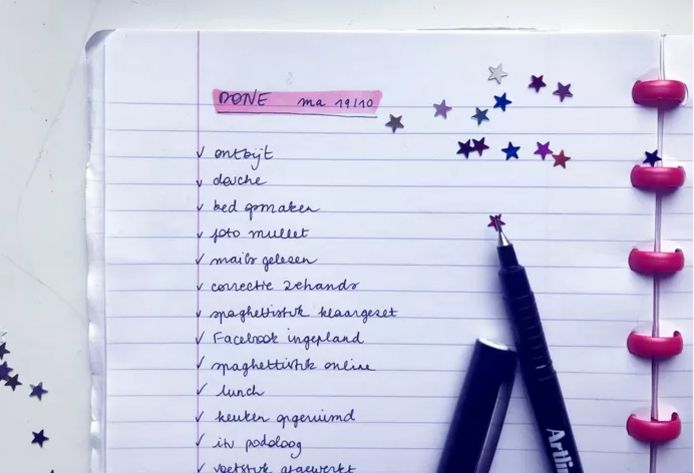 DONE ma 19/10
✓ ontbijt
✓ douche
✓ bed opmaken
✓ foto mullet
✓ mails gelezen
✓ correctie 2ehands
✓ spaghettistuk klaargezet
✓ Facebook ingepland
✓ spaghettistuk online
✓ lunch
✓ keuken opgeruimd
✓ itv podoloog
✓ voetstuk afgewerkt
Artlin